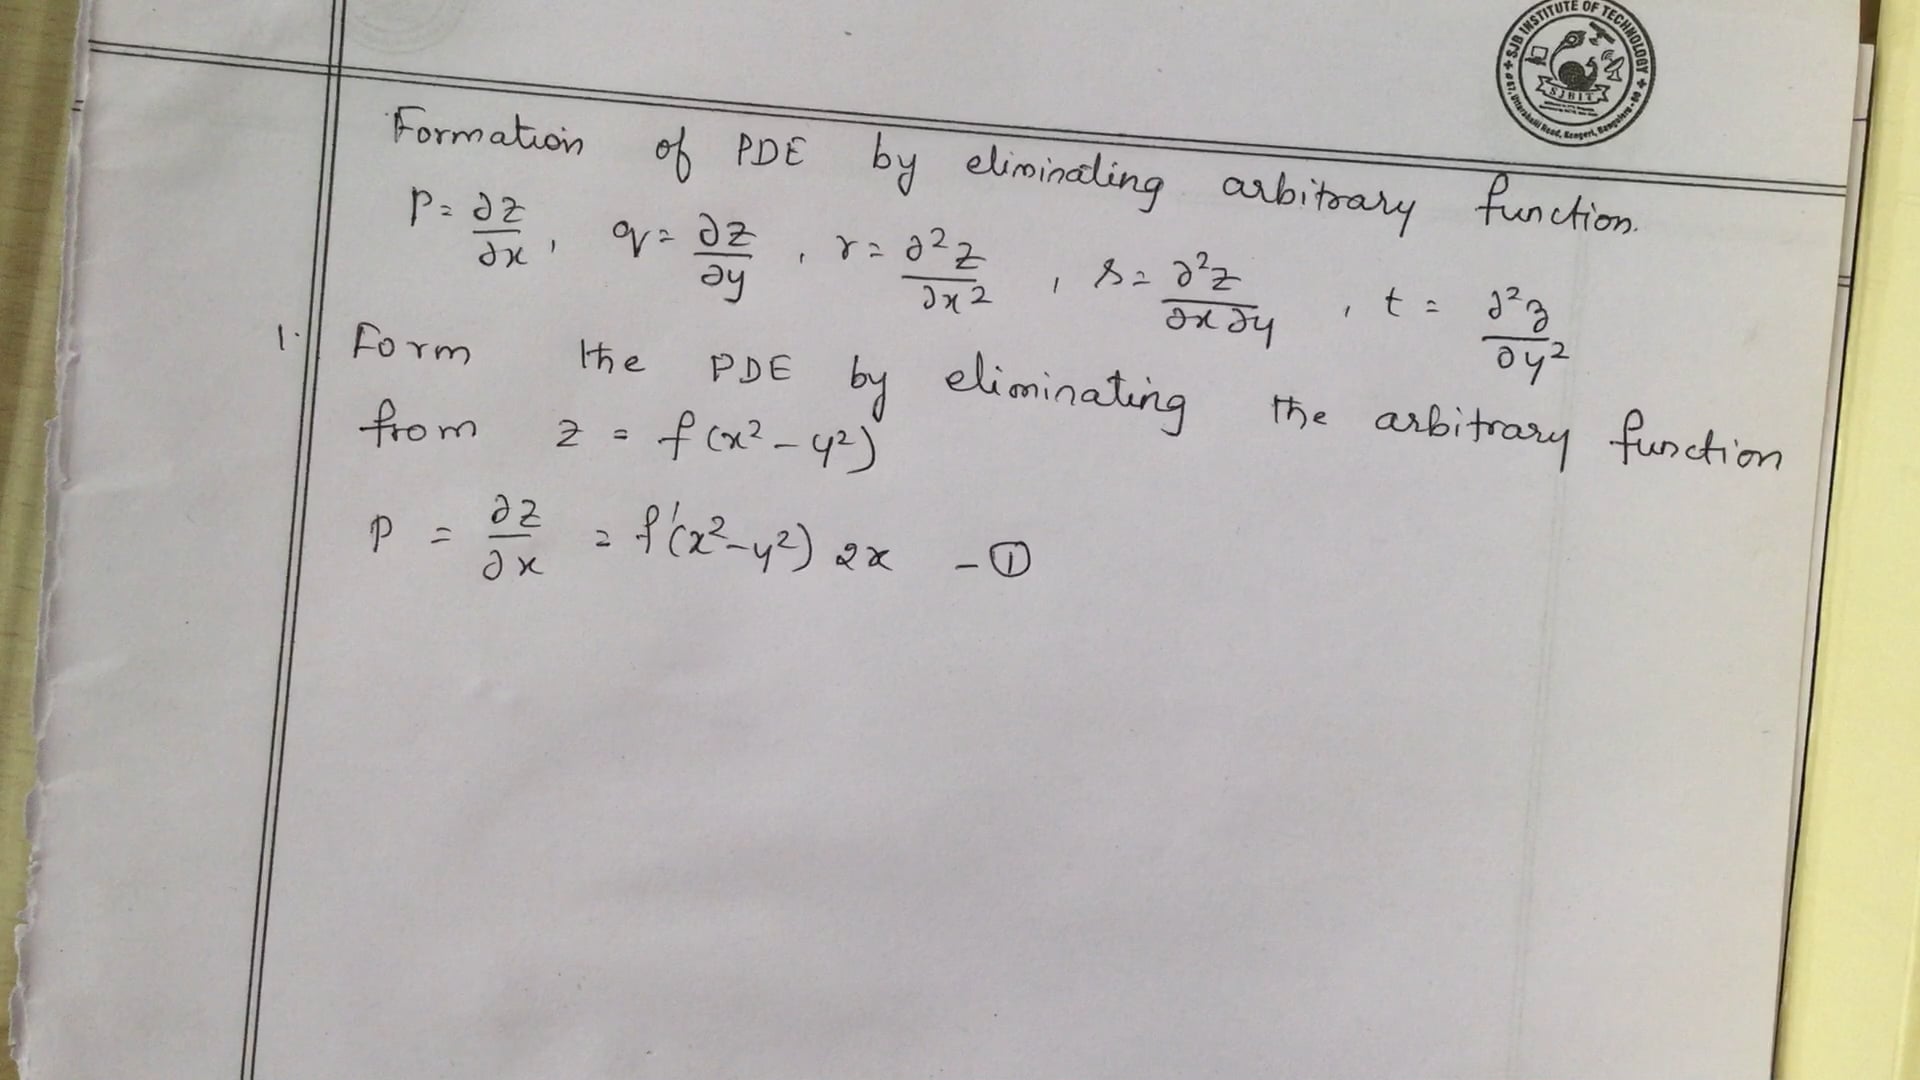 SJB INSTITUTE OF TECHNOLOGY
SJBIT
Formation of PDE by eliminating arbitrary function.
p = ∂z/∂x, q = ∂z/∂y, r = ∂²z/∂x², s = ∂²z/∂x∂y, t = ∂²z/∂y²
1. Form the PDE by eliminating the arbitrary function
from z = f(x² - y²)
p = ∂z/∂x = f'(x² - y²) 2x - ①